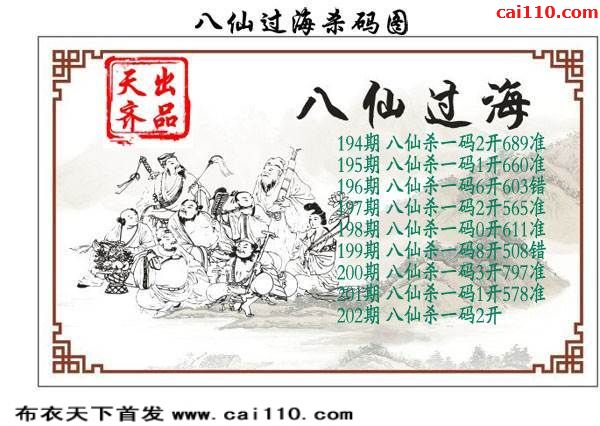 八仙过海杀码图
cai110.com
天齐出品
八仙过海
194期 八仙杀一码2开689准
195期 八仙杀一码1开660准
196期 八仙杀一码6开603错
197期 八仙杀一码2开565准
198期 八仙杀一码0开611准
199期 八仙杀一码8开508错
200期 八仙杀一码3开797准
201期 八仙杀一码1开578准
202期 八仙杀一码2开
布衣天下首发 www.cai110.com